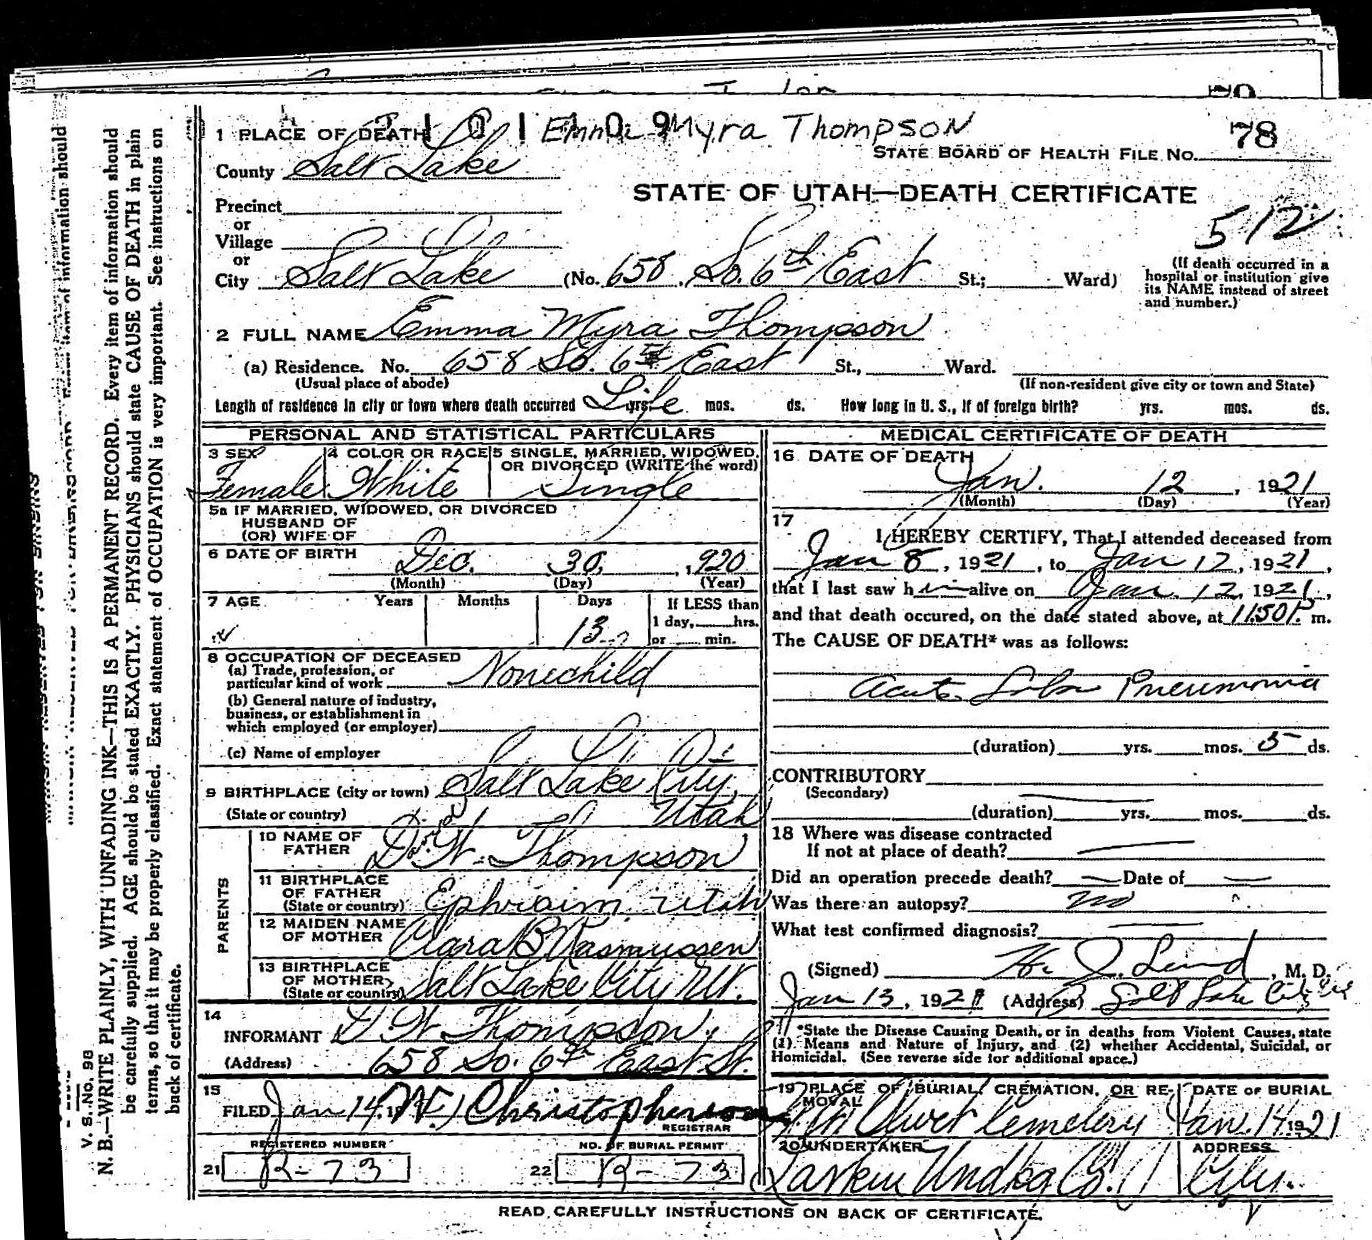 1 PLACE OF DEATH Emma Myra Thompson
County Salt Lake
STATE BOARD OF HEALTH FILE NO. 78
STATE OF UTAH—DEATH CERTIFICATE
512
Precinct
or
Village
or
City Salt Lake (No. 658 So. 6th East St.; Ward)
(If death occurred in a
hospital or institution give
its NAME instead of street
and number.)
2 FULL NAME Emma Myra Thompson
(a) Residence. No. 658 So. 6th East St., Ward.
(Usual place of abode) (If non-resident give city or town and State)
Length of residence in city or town where death occurred Life yrs. mos. ds. How long in U. S., if of foreign birth? yrs. mos. ds.
PERSONAL AND STATISTICAL PARTICULARS
3 SEX 4 COLOR OR RACE 5 SINGLE, MARRIED, WIDOWED,
OR DIVORCED (WRITE the word)
Female White Single
5a IF MARRIED, WIDOWED, OR DIVORCED
HUSBAND OF
(OR) WIFE OF
6 DATE OF BIRTH Dec. 30, 1920
(Month) (Day) (Year)
7 AGE Years Months Days If LESS than
1 day, hrs.
13 or min.
8 OCCUPATION OF DECEASED
(a) Trade, profession, or
particular kind of work None child
(b) General nature of industry,
business, or establishment in
which employed (or employer)
(c) Name of employer
9 BIRTHPLACE (city or town) Salt Lake City,
(State or country) Utah
PARENTS
10 NAME OF
FATHER D. W. Thompson
11 BIRTHPLACE
OF FATHER
(State or country) Ephraim, Utah
12 MAIDEN NAME
OF MOTHER Clara B Rasmussen
13 BIRTHPLACE
OF MOTHER
(State or country) Salt Lake City Ut.
14
INFORMANT D. W. Thompson,
(Address) 658 So. 6th East St.
15
FILED Jan 14, W. J Christopherson
REGISTRAR
REGISTERED NUMBER NO. OF BURIAL PERMIT
21 R-73 22 R-73
MEDICAL CERTIFICATE OF DEATH
16 DATE OF DEATH
Jan. 12, 1921
(Month) (Day) (Year)
17
I HEREBY CERTIFY, That I attended deceased from
Jan 8, 1921, to Jan 12, 1921,
that I last saw h alive on Jan. 12, 1921,
and that death occured, on the date stated above, at 11:50 P. m.
The CAUSE OF DEATH* was as follows:
Acute Lobar Pneumonia
(duration) yrs. mos. 5 ds.
CONTRIBUTORY
(Secondary)
(duration) yrs. mos. ds.
18 Where was disease contracted
If not at place of death?
Did an operation precede death? Date of
Was there an autopsy? no
What test confirmed diagnosis?
(Signed) H. J. Lund, M. D.
Jan 13, 1921 (Address) Salt Lake City
*State the Disease Causing Death, or in deaths from Violent Causes, state
(1) Means and Nature of Injury, and (2) whether Accidental, Suicidal, or
Homicidal. (See reverse side for additional space.)
19 PLACE OF BURIAL, CREMATION, OR RE- DATE OF BURIAL
MOVAL
Mt Olivet Cemetery Jan. 14 1921
20 UNDERTAKER ADDRESS
Larkin Undkg Co. City.
READ CAREFULLY INSTRUCTIONS ON BACK OF CERTIFICATE.
V. S. No. 98
N. B.—WRITE PLAINLY, WITH UNFADING INK—THIS IS A PERMANENT RECORD. Every item of information should
be carefully supplied. AGE should be stated EXACTLY. PHYSICIANS should state CAUSE OF DEATH in plain
terms, so that it may be properly classified. Exact statement of OCCUPATION is very important. See instructions on
back of certificate.